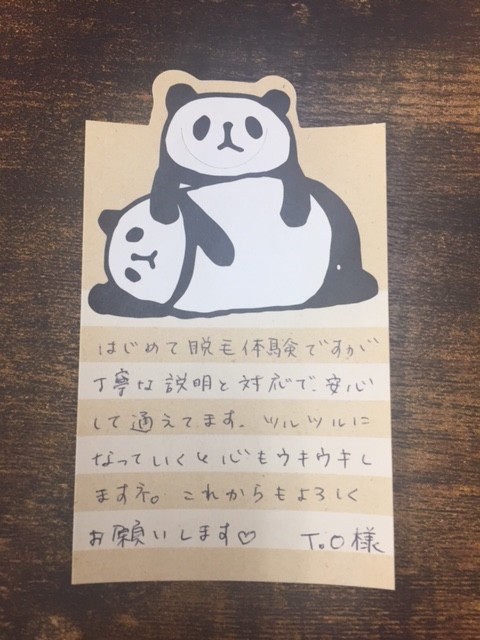 はじめて脱毛体験ですが
丁寧な説明と対応で、安心
して通えてます。ツルツルに
なっていくと心もウキウキし
ますネ。これからもよろしく
お願いします♡ T.O様